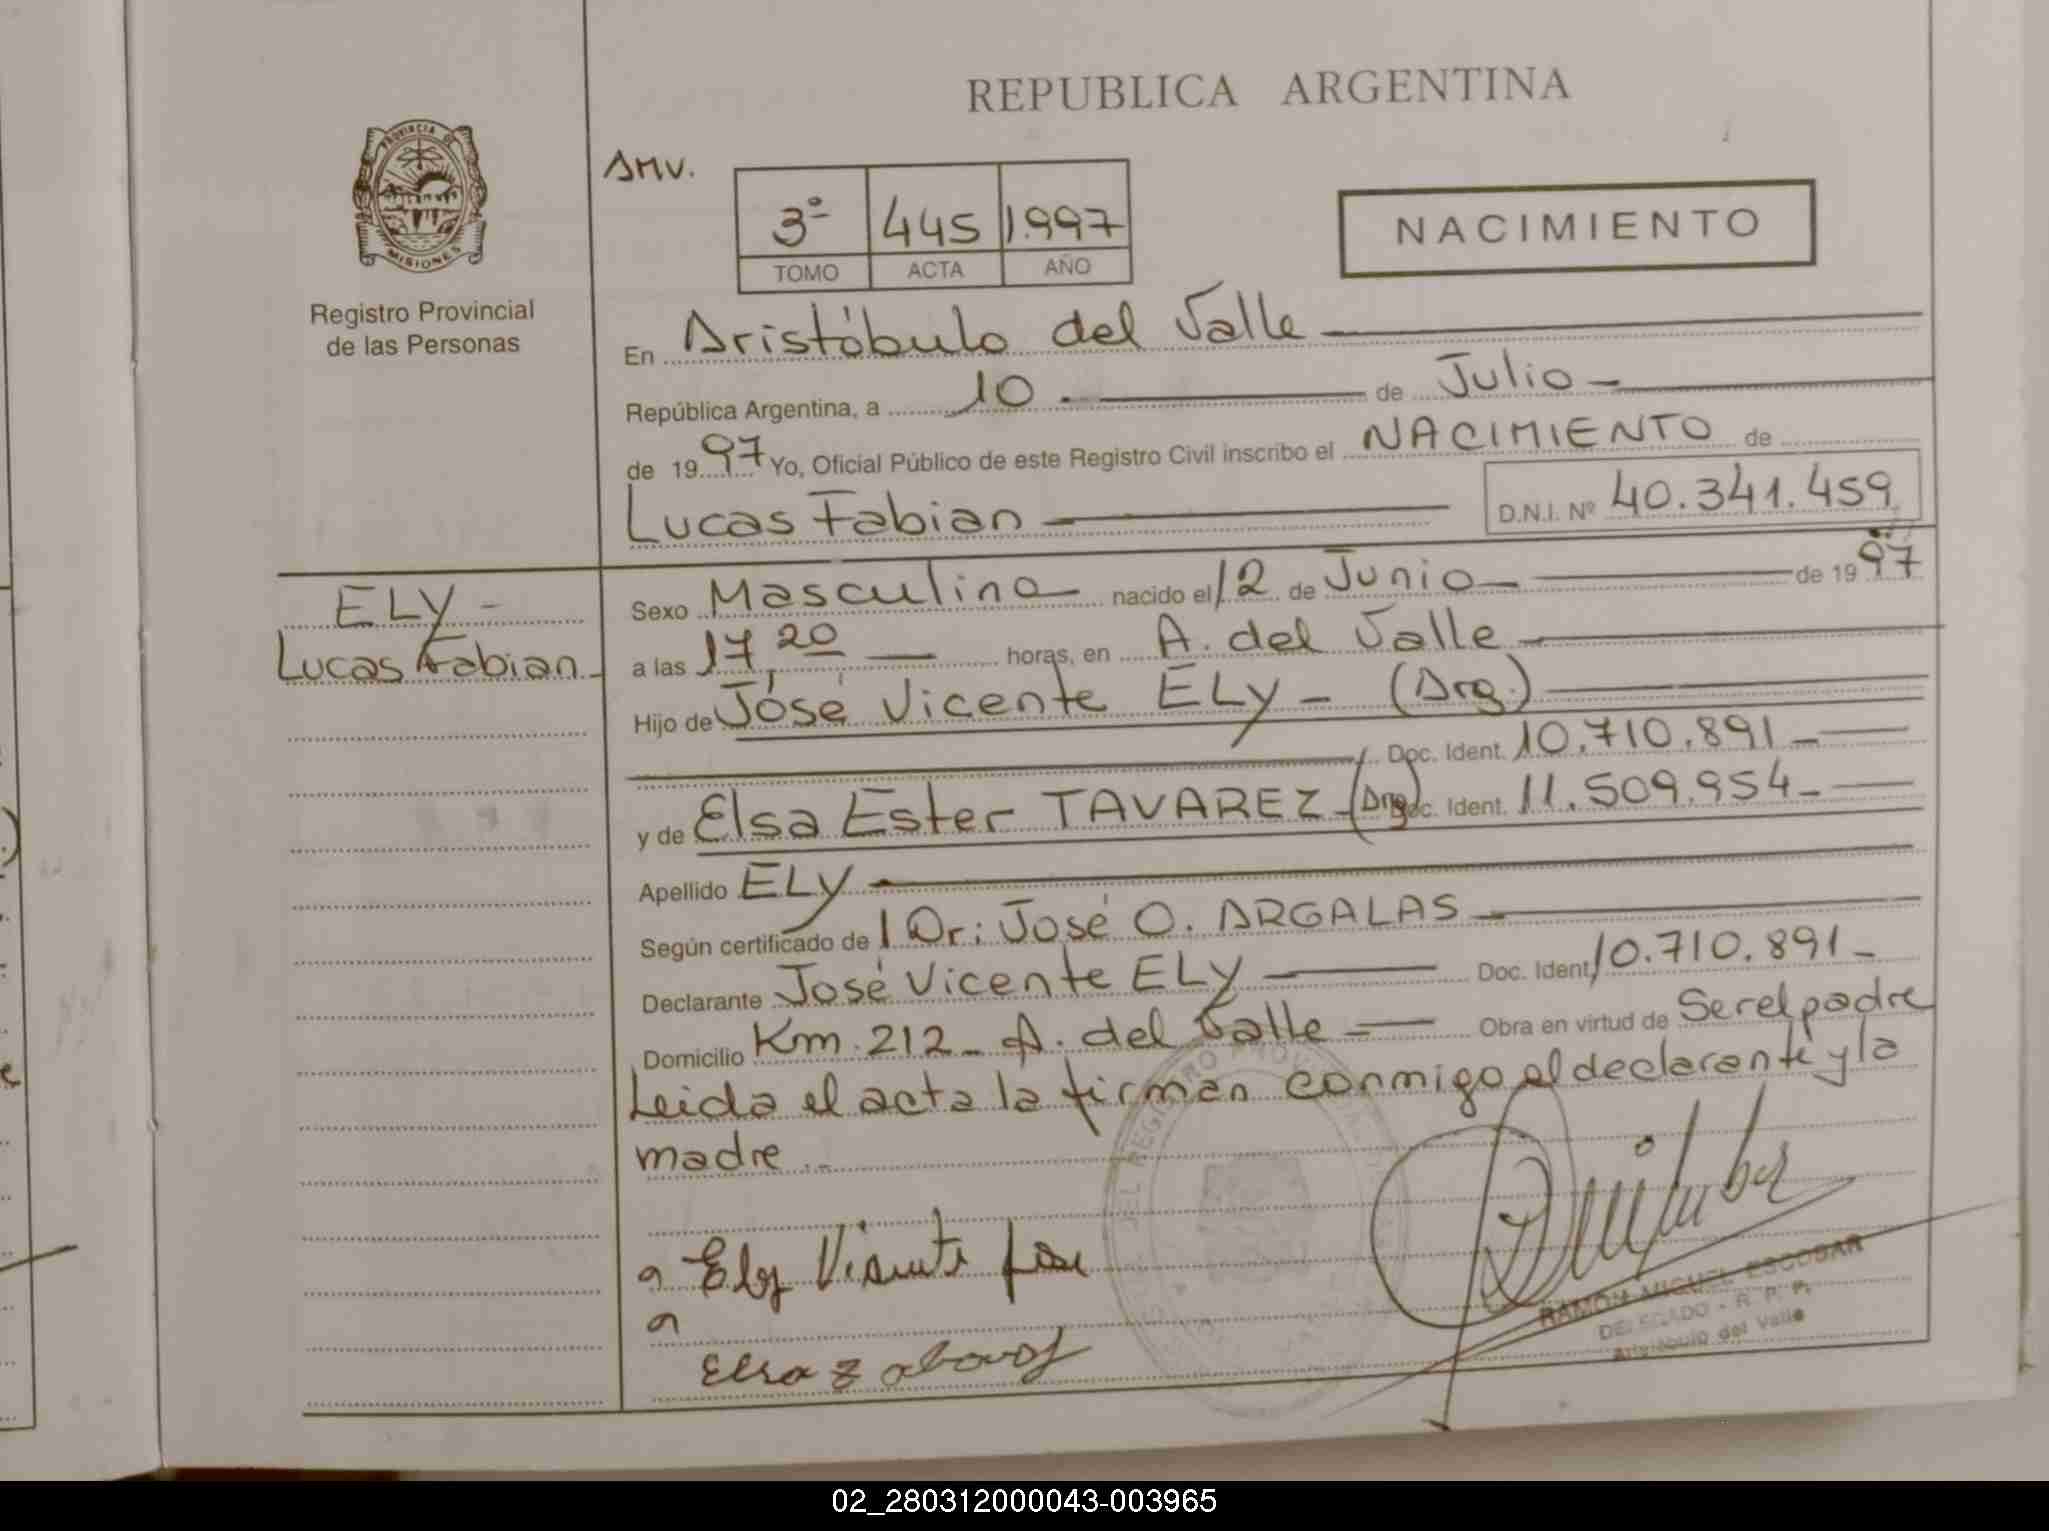 REPUBLICA ARGENTINA
PROVINCIA DE
MISIONES
Registro Provincial
de las Personas
AMV.
3º 445 1.997
TOMO ACTA AÑO
NACIMIENTO
En Aristóbulo del Valle
República Argentina, a 10 de Julio
de 1997 Yo, Oficial Público de este Registro Civil inscribo el NACIMIENTO de
Lucas Fabian D.N.I. Nº 40.341.459
ELY -
Lucas Fabian
Sexo Masculino nacido el 12 de Junio de 1997
a las 17,20 horas, en A. del Valle
Hijo de José Vicente ELY - (Arg.)
Doc. Ident. 10.710.891
y de Elsa Ester TAVAREZ - (Arg) Doc. Ident. 11.509.954
Apellido ELY
Según certificado de l Dr: José O. ARGALAS
Declarante José Vicente ELY Doc. Ident. 10.710.891
Domicilio Km. 212 - A. del Valle Obra en virtud de Ser el padre
Leida el acta la firman conmigo el declarante y la
madre
Ely
RAMON MIGUEL ESCOBAR
DELEGADO - R. P. P.
Aristobulo del Valle
02_280312000043-003965